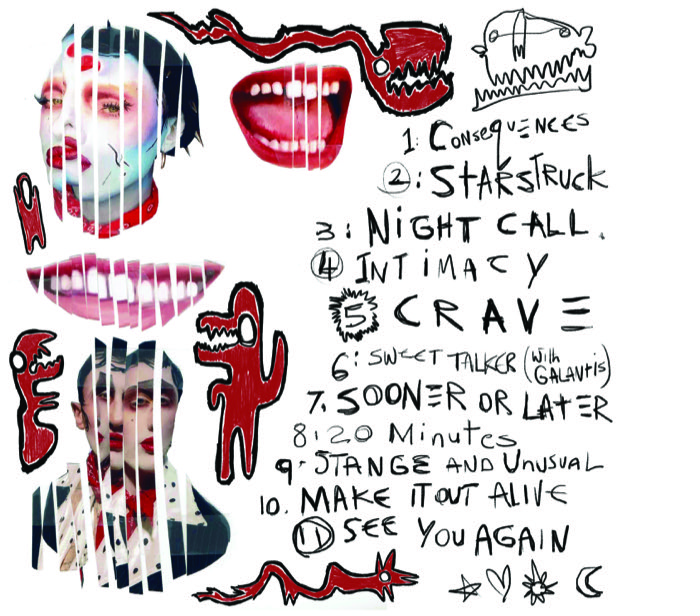 1: CONSEQUENCES
2: STARSTRUCK
3: NIGHT CALL.
4 INTIMACY
5 CRAVE
6: SWEET TALKER (with GALANTIS)
7. SOONER OR LATER
8: 20 Minutes
9. STANGE AND UNUSUAL
10. MAKE IT OUT ALIVE
11 SEE YOU AGAIN